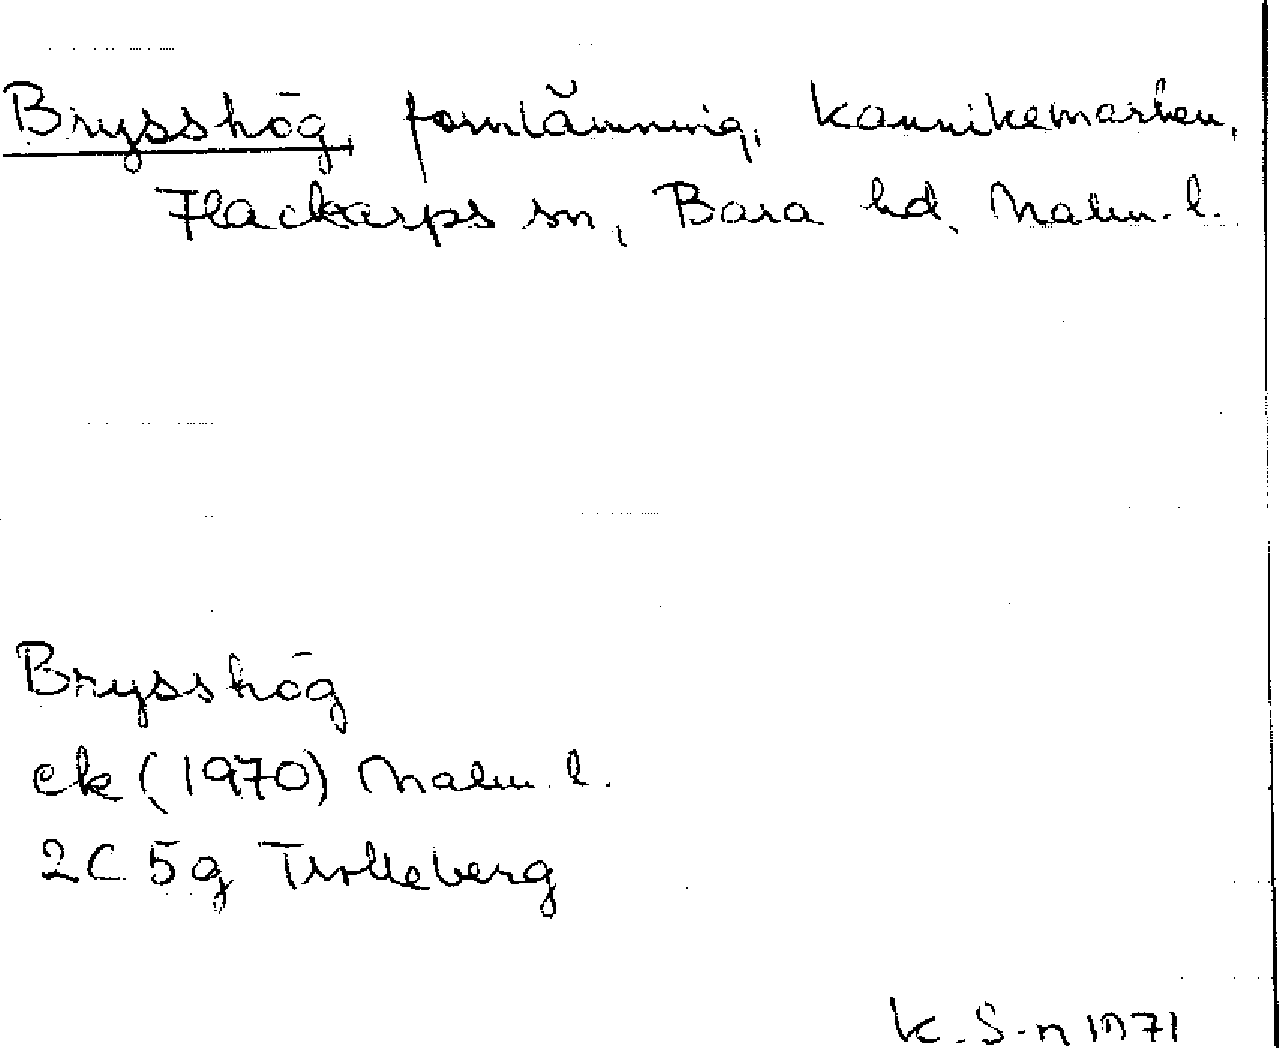 Brysshög, fornlämning, Kannikemarken,
Flackarps sn, Bara hd, Malm. l.
Brysshög
ek (1970) Malm. l.
2C 5g Trolleberg
K. S-n 1971